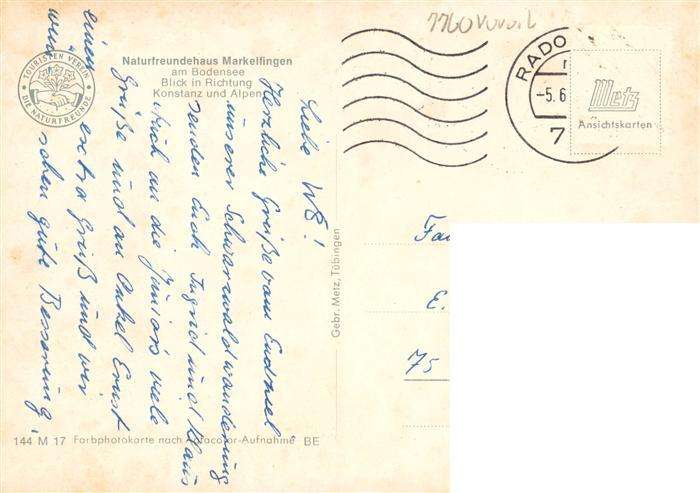 7760 Vovoil
Naturfreundehaus Markelfingen
am Bodensee
Blick in Richtung
Konstanz und Alpen
TOURISTEN VEREIN
DIE NATURFREUNDE
RADO
-5.6
7
Metz
Ansichtskarten
Liebe WE!
Herzliche Grüße vom Endziel
unserer Schwarzwaldwanderung
senden Euch Ingrid und Klaus
Auch an die Juniors viele
Grüße und an Onkel Ernst
einen extra Gruß und wir
wünschen gute Besserung!
Gebr. Metz, Tübingen
Fa
E.
75
144 M 17 Farbphotokarte nach Agfacolor-Aufnahme BE